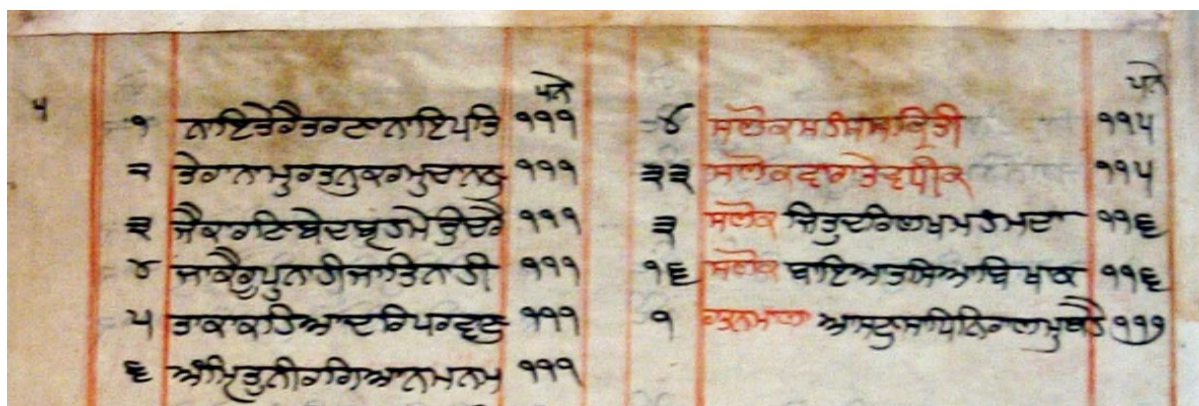 ਪਤੇ
੫ ੧ ਨਾਇਤੇਰੈਤਰਣਾਨਾਇਪਤਿ ੧੧੧
੨ ਤੇਰਾਨਾਮੁਰਤਨੁਕਰਮੁਚਾਨਣੁ ੧੧੧
੩ ਜੈਕਾਰਣਿਬੇਦਬ੍ਰਹਮੇਉਚਰੇ ੧੧੧
੪ ਜਾਕੈਰੂਪੁਨਾਹੀਜਾਤਿਨਾਹੀ ੧੧੧
੫ ਤਾਕਾਕਹਿਆਦਰਿਪਰਵਾਣੁ ੧੧੧
੬ ਅੰਮ੍ਰਿਤੁਨੀਰਗਿਆਨਮਨਮ ੧੧੧
ਪਤੇ
੪ ਸਲੋਕਸਹਸਸਕ੍ਰਿਤੀ ੧੧੫
੩੨ ਸਲੋਕਵਾਰਾਤੇਵਧੀਕ ੧੧੫
੩ ਸਲੋਕ ਜਿਤੁਦਰਿਲਖਮਹੰਮਦਾ ੧੧੬
੧੬ ਸਲੋਕ ਬਾਇਆਤਸਿਆਬਿ ਖਾਕ ੧੧੬
੧ ਰਤਨਮਾਲਾ ਆਸਣੁਸਾਧਿਨਿਰਾਲਮੁਰਹੈ ੧੧੭